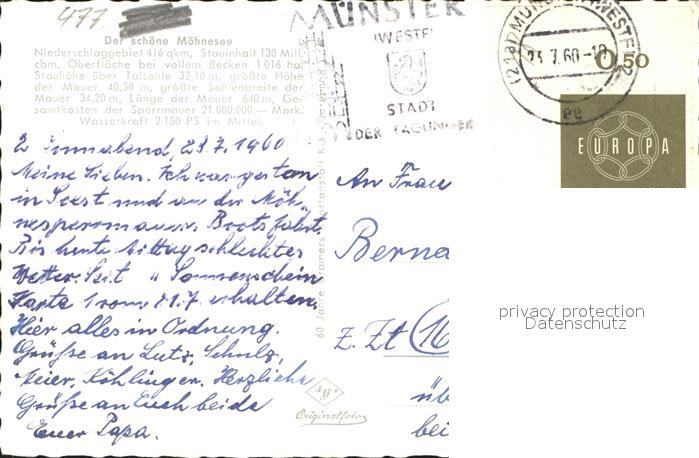 477.
Der schöne Möhnesee
Niederschlaggebiet 416 qkm, Stauinhalt 130 Mill.
cbm. Oberfläche bei vollem Becken 1 016 ha.
Stauhöhe über Talsohle 32,10 m, größte Höhe
der Mauer 40,30 m, größte Sohlenbreite der
Mauer 34,20 m, Länge der Mauer 640 m, Ge-
samtkosten der Sperrmauer 21.000.000.— Mark.
Wasserkraft 2 150 PS im Mittel.
Sonnabend, 23.7.1960
Meine Lieben. Ich war gestern
in Soest und an der Möh-
nesperrmauer. Boots fahrt.
Bis heute Mittag schlechtes
Wetter. Seit " Sonnenschein
Karte 1 vom 21.7 erhalten.
Hier alles in Ordnung.
Grüße an Lutz, Schulz,
Meier, Köhlinger. Herzliche
Grüße an Euch beide
Euer Papa.
60 Jahre Cramers Kunstanstalt K.G.
Agfa
Originalfoto
MÜNSTER
(WESTF
STADT
DER TAGUNGEN
(21a) MÜNSTER (WESTF) 2
23.7.60-18
ee
0,50
EUROPA
An Frau
Berna
z. Zt (16
üb
bei
privacy protection
Datenschutz